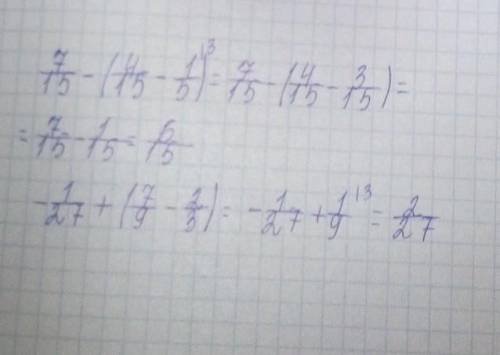 7/15 - (4/15 - 1/5)^|3 = 7/15 - (4/15 - 3/15) =
= 7/15 - 1/15 = 6/15
- 1/27 + (7/9 - 2/3) = - 1/27 + 1/9^|3 = 2/27